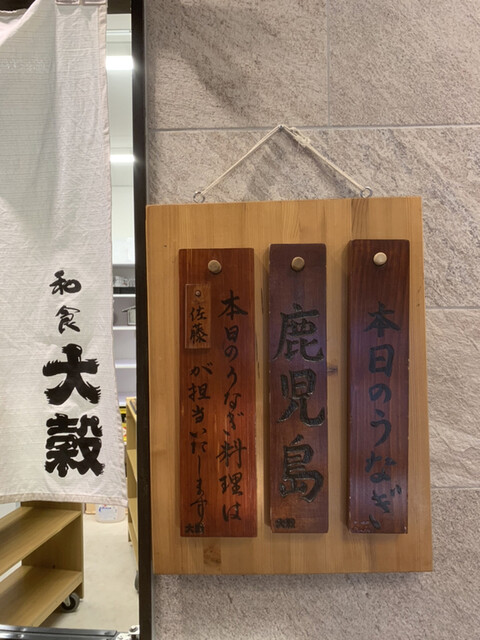 本日のうなぎ
鹿児島
大穀
本日のうなぎ料理は
佐藤
が担当いたします
大穀
和食
大穀